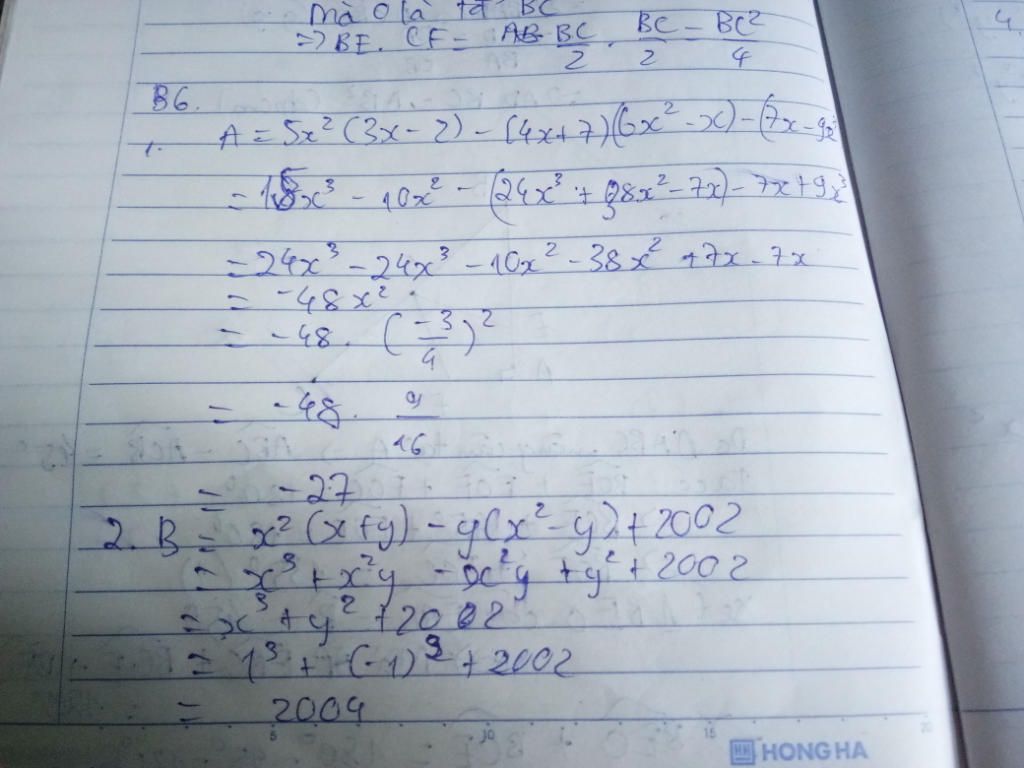 mà O là tđ BC
=> BE. CF = BC/2 . BC/2 = BC²/4
B6.
1. A = 5x² (3x - 2) - (4x+7)(6x² - x) - (7x - 9x³
= 15x³ - 10x² - (24x³ + 38x² - 7x) - 7x + 9x³
= 24x³ - 24x³ - 10x² - 38x² + 7x - 7x
= -48x²
= -48. (-3/4)²
= -48. 9/16
= -27
2. B = x² (x+y) - y(x² - y) + 2002
= x³ + x²y - x²y + y² + 2002
= x³ + y² + 2002
= 1³ + (-1)² + 2002
= 2004
5 10 15 20
HONG HA
4